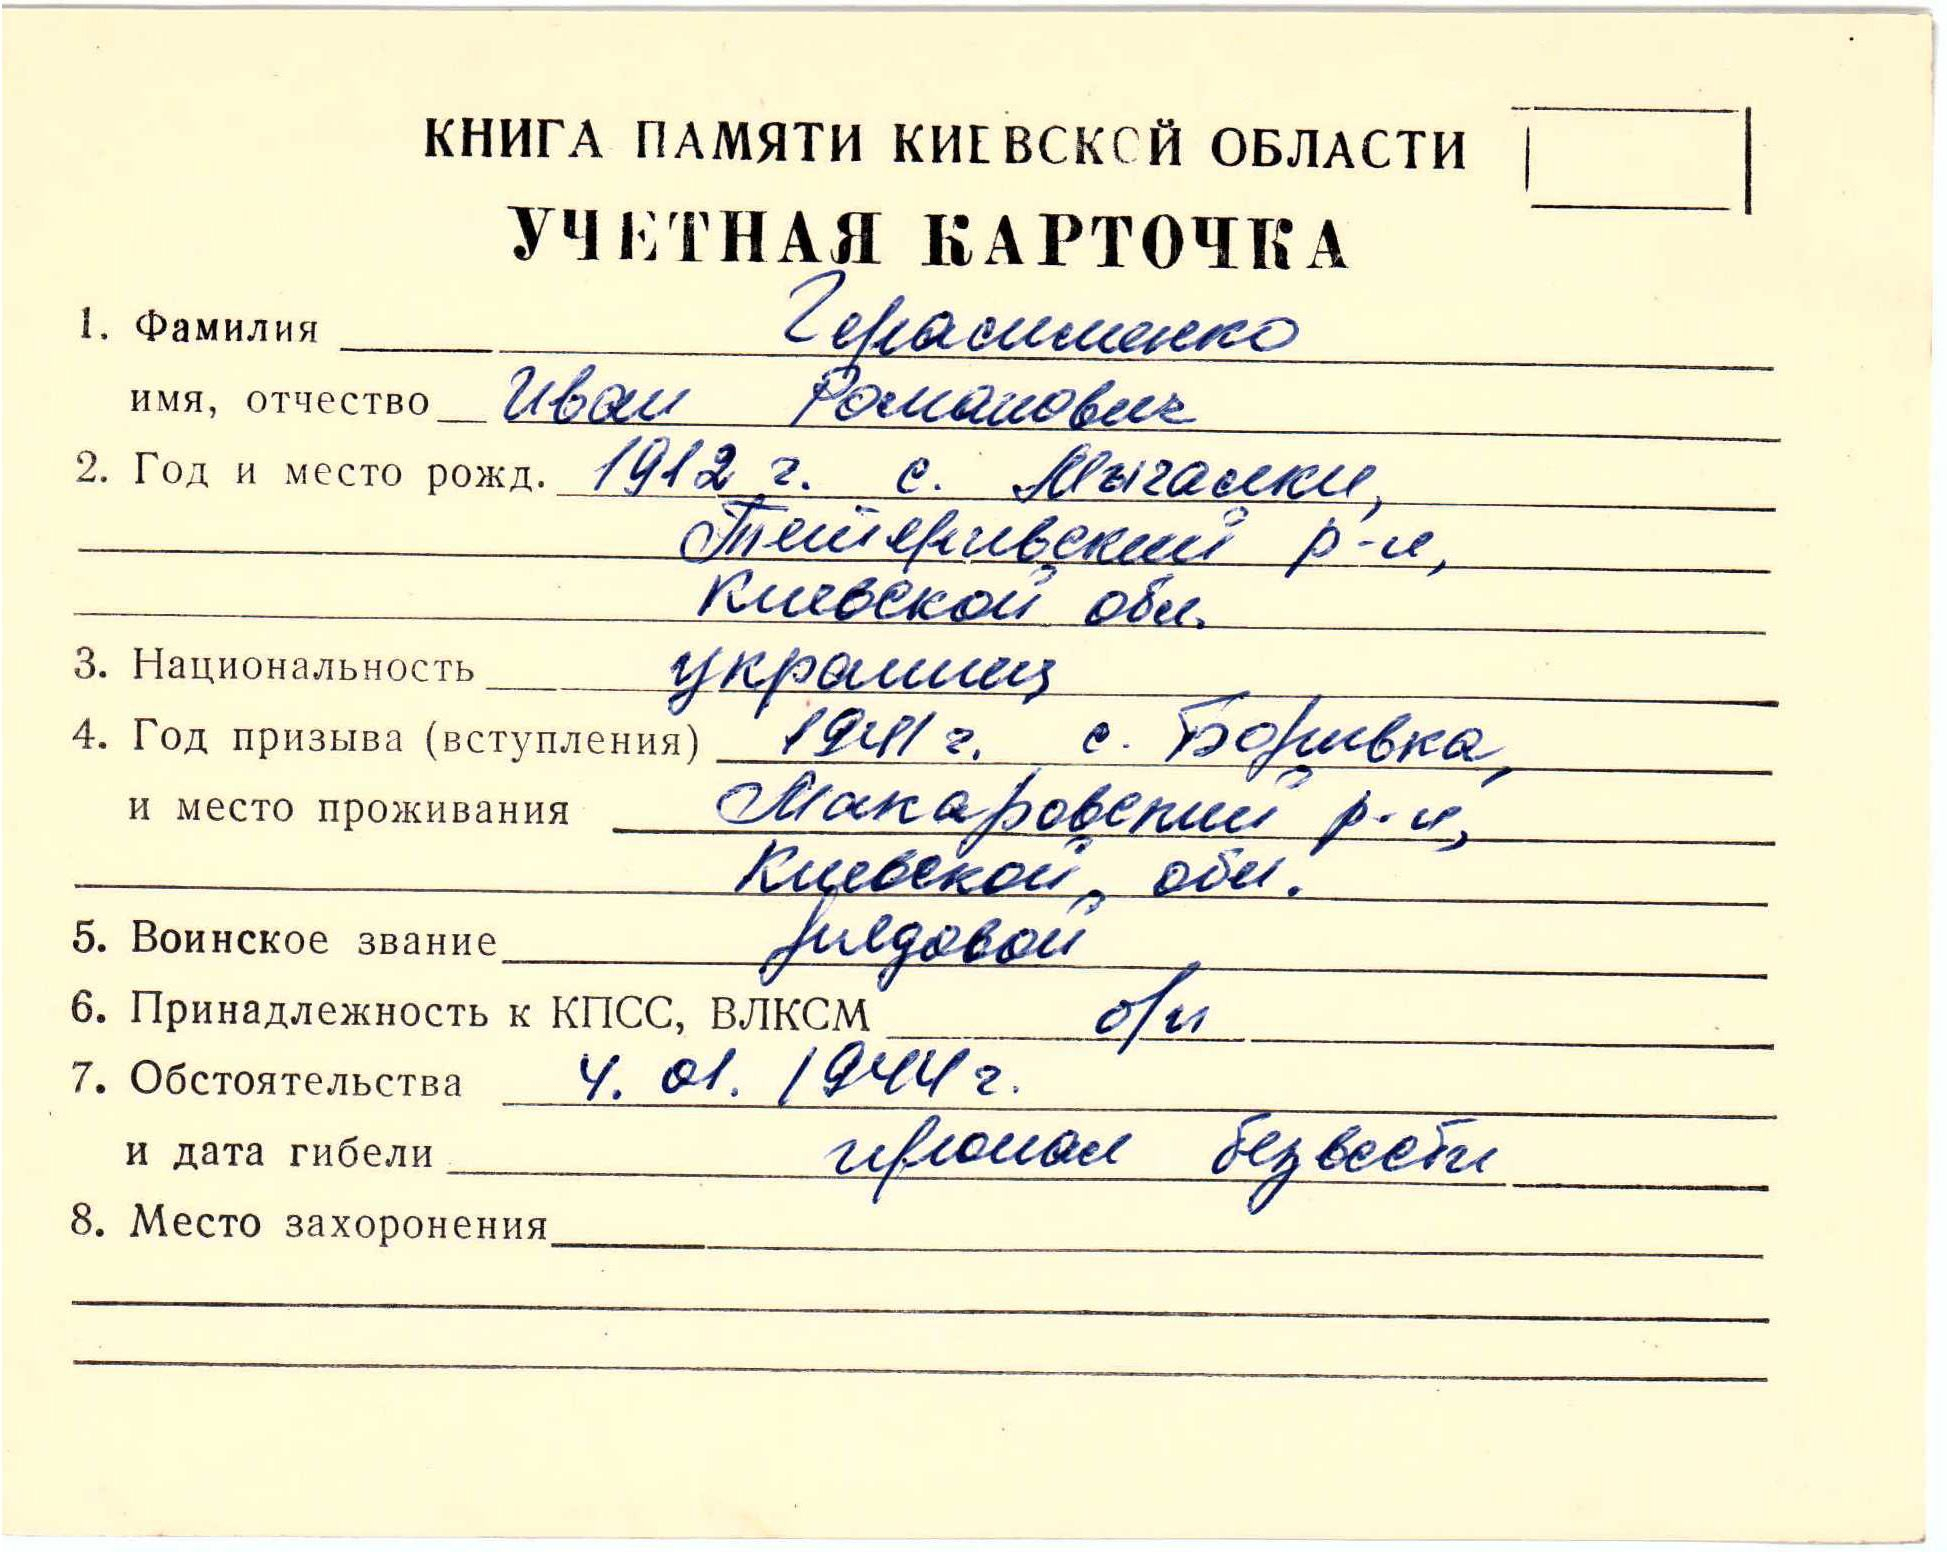 КНИГА ПАМЯТИ КИЕВСКОЙ ОБЛАСТИ
УЧЕТНАЯ КАРТОЧКА
1. Фамилия Герасименко
имя, отчество Иван Романович
2. Год и место рожд. 1912 г. с. Мигалки,
Тетеривский р-н,
Киевской обл.
3. Национальность украинец
4. Год призыва (вступления) 1941 г. с. Боривка,
и место проживания Макаровский р-н,
Киевской обл.
5. Воинское звание рядовой
6. Принадлежность к КПСС, ВЛКСМ б/п
7. Обстоятельства 4. 01. 1944 г.
и дата гибели пропал безвести
8. Место захоронения